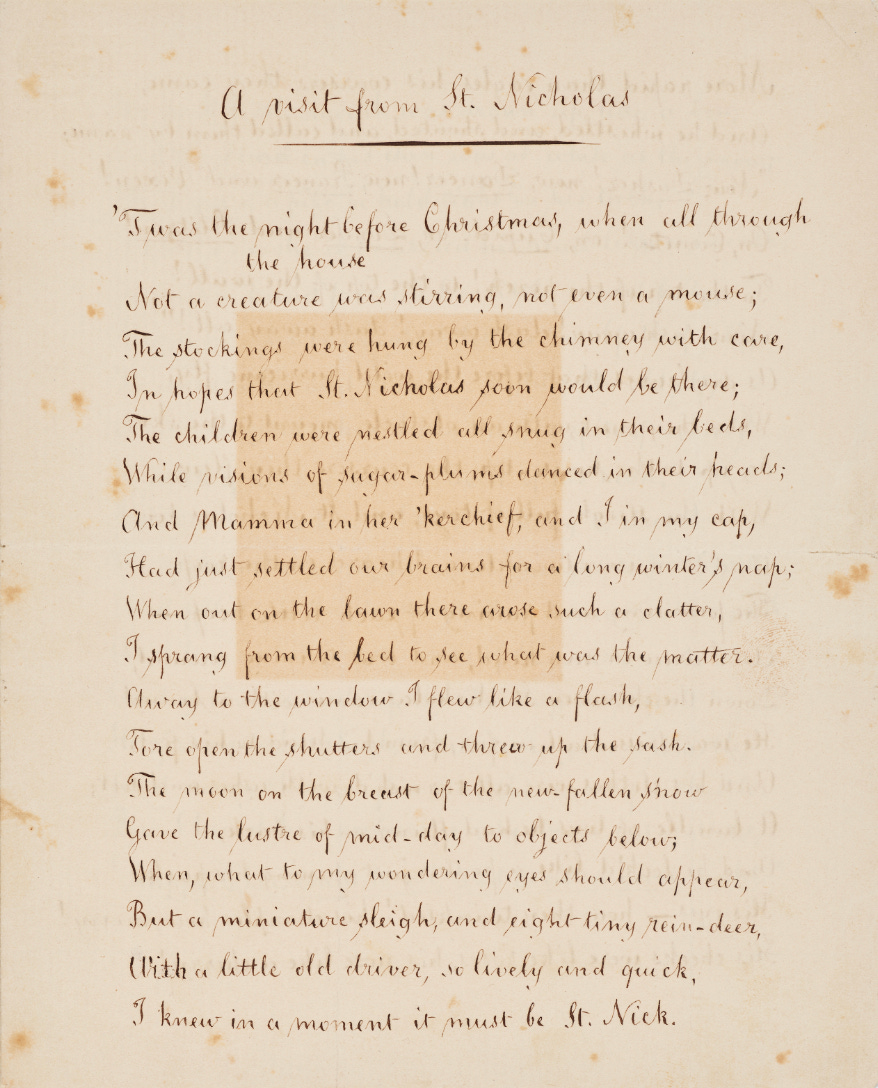 A visit from St. Nicholas
'Twas the night before Christmas, when all through
the house
Not a creature was stirring, not even a mouse;
The stockings were hung by the chimney with care,
In hopes that St. Nicholas soon would be there;
The children were nestled all snug in their beds,
While visions of sugar-plums danced in their heads;
And Mamma in her 'kerchief, and I in my cap,
Had just settled our brains for a long winter's nap;
When out on the lawn there arose such a clatter,
I sprang from the bed to see what was the matter.
Away to the window I flew like a flash,
Tore open the shutters and threw up the sash.
The moon on the breast of the new-fallen snow
Gave the lustre of mid-day to objects below;
When, what to my wondering eyes should appear,
But a miniature sleigh, and eight tiny rein-deer,
With a little old driver, so lively and quick,
I knew in a moment it must be St. Nick.